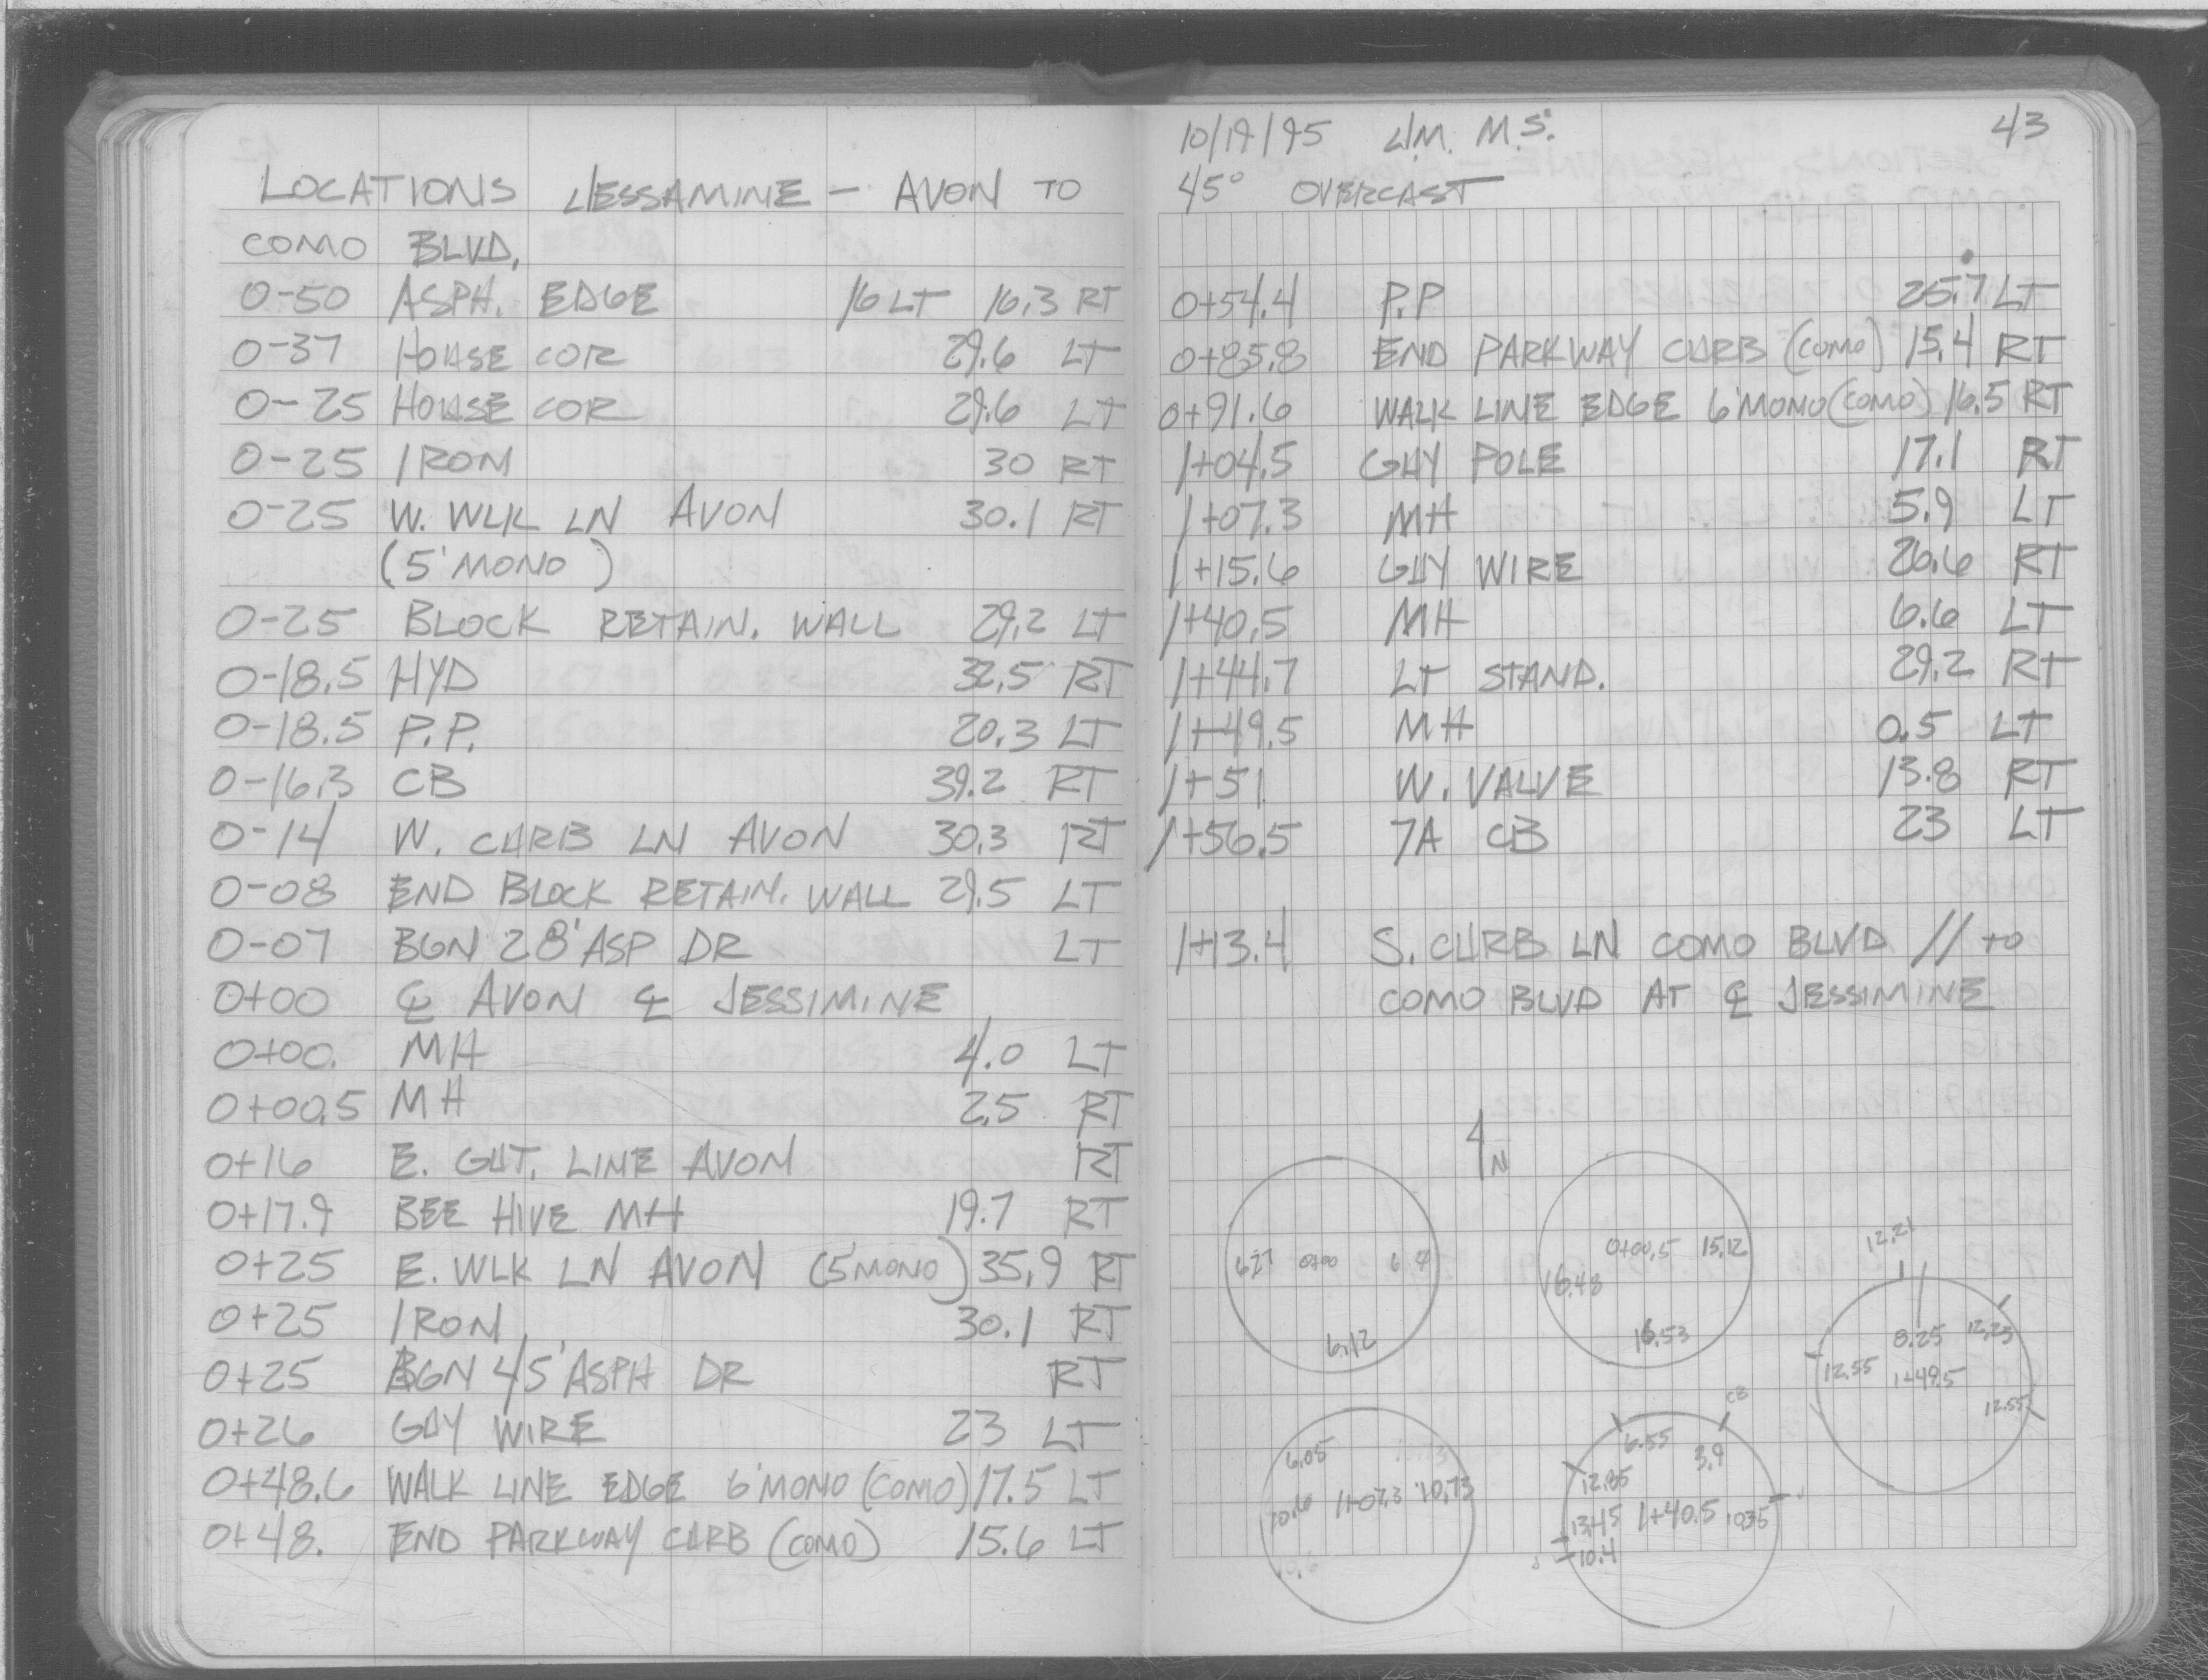 LOCATIONS JESSAMINE - AVON TO
COMO BLVD.
0-50 ASPH. EDGE 16 LT 16.3 RT
0-37 HOUSE COR 29.6 LT
0-25 HOUSE COR 29.6 LT
0-25 IRON 30 RT
0-25 W. WLK LN AVON 30.1 RT
(5' MONO)
0-25 BLOCK RETAIN. WALL 29.2 LT
0-18.5 HYD 32.5 RT
0-18.5 P.P. 20.3 LT
0-16.3 CB 39.2 RT
0-14 W. CURB LN AVON 30.3 RT
0-08 END BLOCK RETAIN. WALL 29.5 LT
0-07 BGN 28' ASP DR LT
0+00 ℄ AVON ℄ JESSIMINE
0+00. MH 4.0 LT
0+00.5 MH 2.5 RT
0+16 E. GUT. LINE AVON RT
0+17.9 BEE HIVE MH 19.7 RT
0+25 E. WLK LN AVON (5 MONO) 35.9 RT
0+25 IRON 30.1 RT
0+25 BGN 45' ASPH DR RT
0+26 GUY WIRE 23 LT
0+48.6 WALK LINE EDGE 6' MONO (COMO) 17.5 LT
0+48. END PARKWAY CURB (COMO) 15.6 LT
10/19/95 J.M. M.S. 43
45° OVERCAST
0+54.4 P.P 25.7 LT
0+85.8 END PARKWAY CURB (COMO) 15.4 RT
0+91.6 WALK LINE EDGE 6' MONO (COMO) 16.5 RT
1+04.5 GUY POLE 17.1 RT
1+07.3 MH 5.9 LT
1+15.6 GUY WIRE 26.6 RT
1+40.5 MH 6.6 LT
1+44.7 LT STAND. 29.2 RT
1+49.5 MH 0.5 LT
1+51 W. VALVE 13.8 RT
1+56.5 7A CB 23 LT
1+13.4 S. CURB LN COMO BLVD // TO
COMO BLVD AT ℄ JESSIMINE
N
0+00
6.12
0+00.5 15.12
16.48
16.53
12.21
8.25 12.23
12.55 1+49.5
12.55
6.05
10.6 1+07.3 10.73
CB
6.55 3.9
12.85
13.45 1+40.5 10.35
10.4